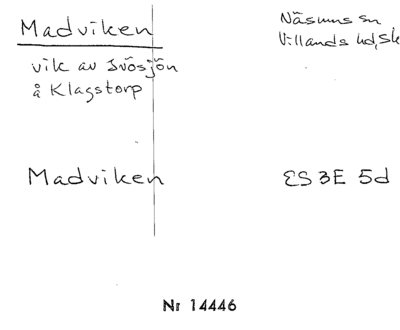 Madviken
Näsums sn
Villands hd, Sk
vik av Ivösjön
å Klagstorp
Madviken
ES 3E 5d
Nr 14446